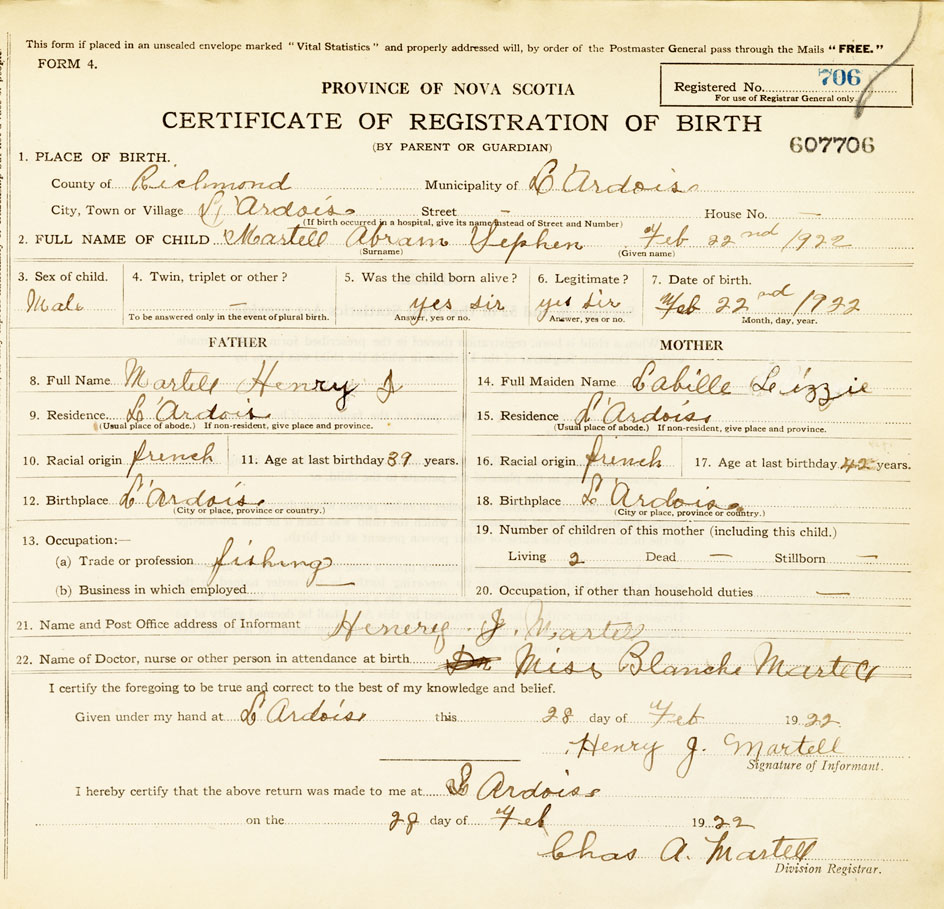 This form if placed in an unsealed envelope marked "Vital Statistics" and properly addressed will, by order of the Postmaster General pass through the Mails "FREE."
FORM 4.
Registered No. 706
For use of Registrar General only
PROVINCE OF NOVA SCOTIA
CERTIFICATE OF REGISTRATION OF BIRTH
(BY PARENT OR GUARDIAN)
607706
1. PLACE OF BIRTH.
County of Richmond Municipality of L'Ardois
City, Town or Village L'Ardois Street - House No. -
(If birth occurred in a hospital, give its name instead of Street and Number)
2. FULL NAME OF CHILD Martell Abram Stephen Feb 22nd 1922
(Surname) (Given name)
3. Sex of child. 4. Twin, triplet or other? 5. Was the child born alive? 6. Legitimate? 7. Date of birth.
Male - yes sir yes sir Feb 22nd 1922
To be answered only in the event of plural birth. Answer, yes or no. Answer, yes or no. Month, day, year.
FATHER
8. Full Name Martell Henry J
9. Residence L'Ardois
(Usual place of abode.) If non-resident, give place and province.
10. Racial origin french 11. Age at last birthday 39 years.
12. Birthplace L'Ardois
(City or place, province or country.)
13. Occupation:—
(a) Trade or profession fishing
(b) Business in which employed —
MOTHER
14. Full Maiden Name Lizzie
15. Residence L'Ardois
(Usual place of abode.) If non-resident, give place and province.
16. Racial origin french 17. Age at last birthday 42 years.
18. Birthplace L'Ardois
(City or place, province or country.)
19. Number of children of this mother (including this child.)
Living 2 Dead — Stillborn —
20. Occupation, if other than household duties —
21. Name and Post Office address of Informant Henery J. Martell
22. Name of Doctor, nurse or other person in attendance at birth Miss Blanche Martell
I certify the foregoing to be true and correct to the best of my knowledge and belief.
Given under my hand at L'Ardois this 28 day of Feb 1922
Henry J. Martell
Signature of Informant.
I hereby certify that the above return was made to me at L'Ardois
on the 28 day of Feb 1922
Chas A. Martell
Division Registrar.